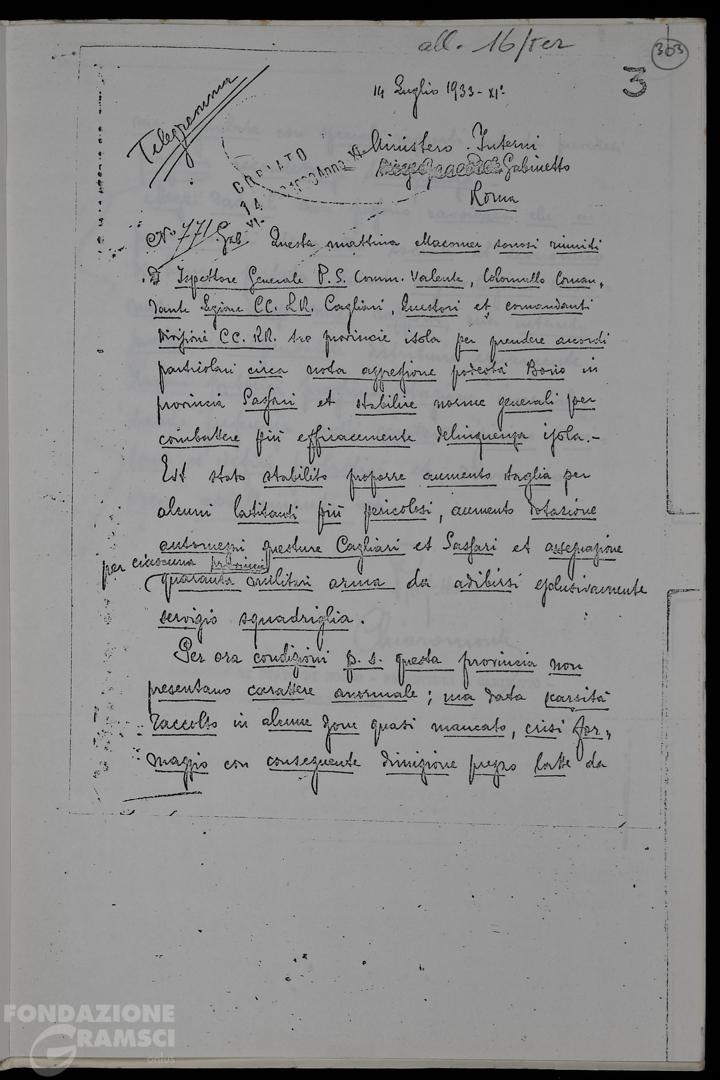 all. 16/Ter
303
3
14 Luglio 1933-XI°
Telegramma
Ministero Interni
Gabinetto
Roma
N° 771 Gab Questa mattina Macomer sonosi riuniti
Ispettore Generale P.S. Comm. Valente, Colonnello Coman=
dante Legione CC. RR. Cagliari, Questori et comandanti
Divisioni CC. RR. tre provincie isola per prendere accordi
particolari circa nota aggressione podestà Bono in
provincia Sassari et stabilire norme generali per
combattere più efficacemente delinquenza isola.-
Est stato stabilito proporre aumento taglia per
alcuni latitanti più pericolosi, aumento dotazione
automezzi questure Cagliari et Sassari et assegnazione
per ciascuna provincia
quaranta militari arma da adibirsi esclusivamente
servizio squadriglia.
Per ora condizioni p.s. questa provincia non
presentano carattere anormale; ma data scarsità
raccolto in alcune zone quasi mancato, crisi for=
maggio con conseguente diminzione prezzo latte da
FONDAZIONE
GRAMSCI
onlus